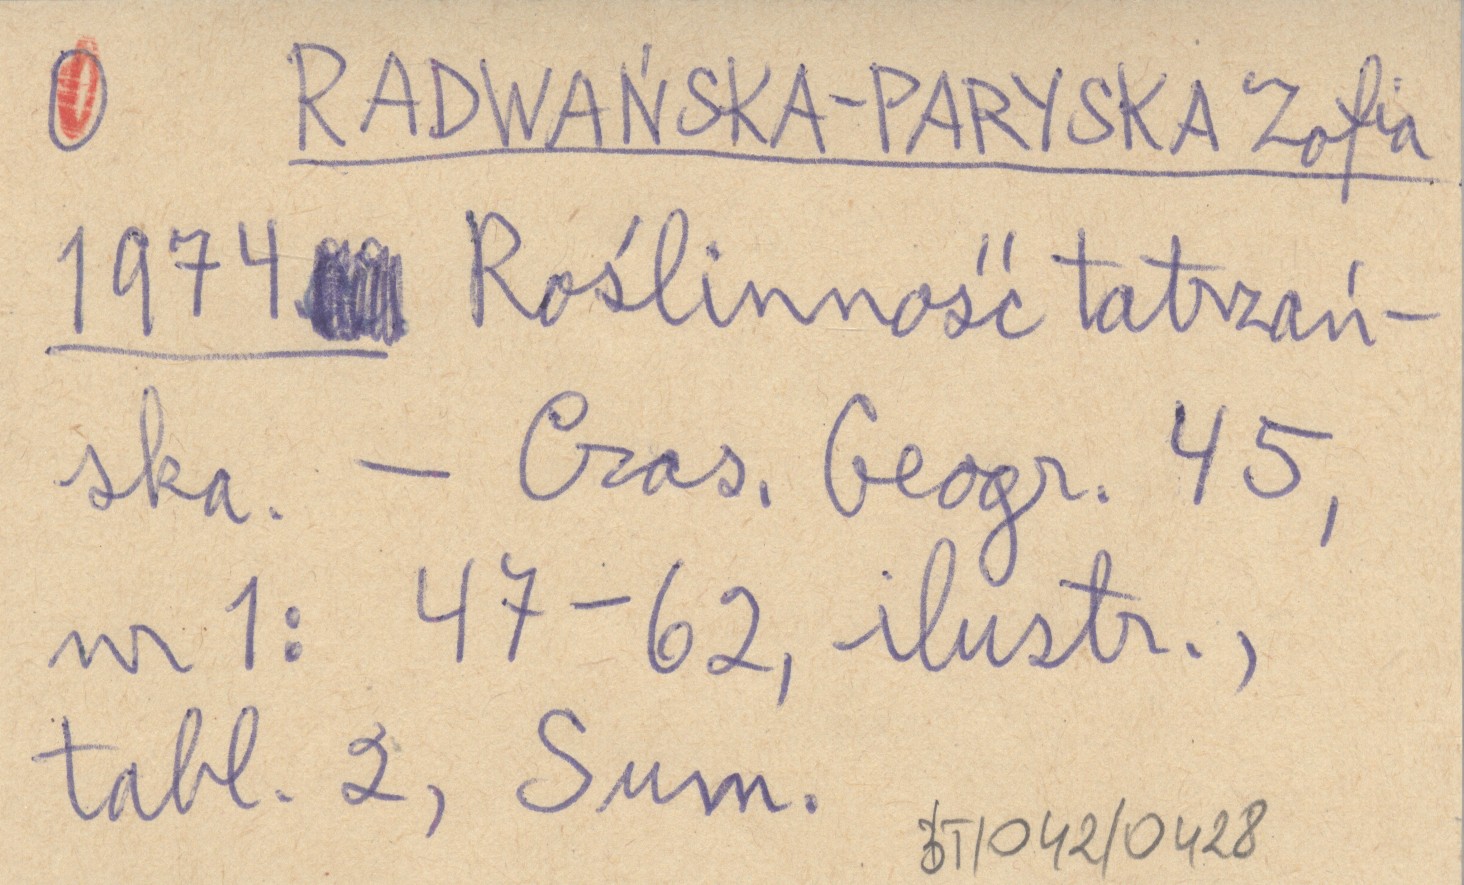 0 RADWAŃSKA-PARYSKA Zofia
1974 Roślinność tatrzań-
ska. — Czas. Geogr. 45,
nr 1: 47-62, ilustr.,
tabl. 2, Sum.
BT/042/0428